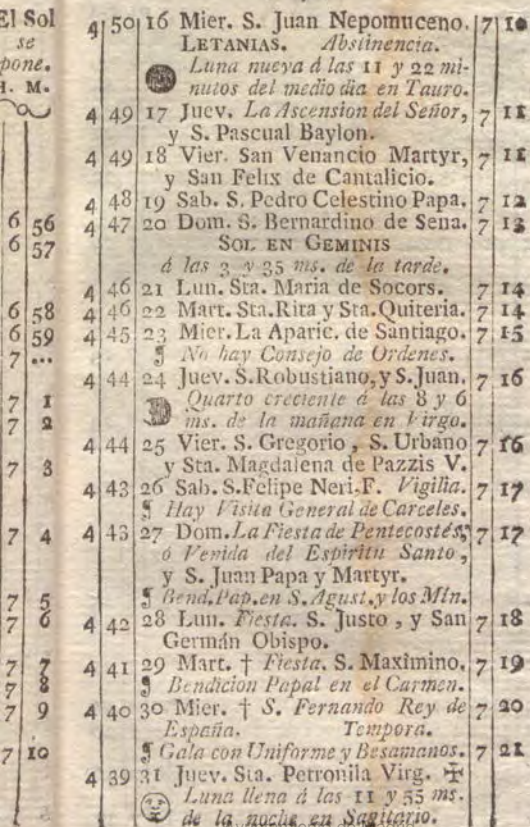 El Sol
se
pone.
H. M.
6 56
6 57
6 58
6 59
7 ...
7 1
7 2
7 3
7 4
7 5
7 6
7 7
7 8
7 9
7 10
4 50 16 Mier. S. Juan Nepomuceno. 7 10
LETANIAS. Abstinencia.
Luna nueva á las 11 y 22 mi-
nutos del medio dia en Tauro.
4 49 17 Juev. La Ascension del Señor, 7 11
y S. Pascual Baylon.
4 49 18 Vier. San Venancio Martyr, 7 11
y San Felix de Cantalicio.
4 48 19 Sab. S. Pedro Celestino Papa. 7 12
4 47 20 Dom. S. Bernardino de Sena. 7 13
SOL EN GEMINIS
á las 3 y 35 ms. de la tarde.
4 46 21 Lun. Sta. Maria de Socors. 7 14
4 46 22 Mart. Sta. Rita y Sta. Quiteria. 7 14
4 45 23 Mier. La Aparic. de Santiago. 7 15
¶ No hay Consejo de Ordenes.
4 44 24 Juev. S. Robustiano, y S. Juan. 7 16
Quarto creciente á las 8 y 6
ms. de la mañana en Virgo.
4 44 25 Vier. S. Gregorio, S. Urbano 7 16
y Sta. Magdalena de Pazzis V.
4 43 26 Sab. S. Felipe Neri. F. Vigilia. 7 17
¶ Hay Visita General de Carceles.
4 43 27 Dom. La Fiesta de Pentecostés, 7 17
ó Venida del Espiritu Santo,
y S. Juan Papa y Martyr.
¶ Bend. Pap. en S. Agust. y los Mín.
4 42 28 Lun. Fiesta. S. Justo, y San 7 18
Germán Obispo.
4 41 29 Mart. † Fiesta. S. Maximino. 7 19
¶ Bendicion Papal en el Carmen.
4 40 30 Mier. † S. Fernando Rey de 7 20
España. Tempora.
¶ Gala con Uniforme y Besamanos. 7 21
4 39 31 Juev. Sta. Petronila Virg. ✠
Luna llena á las 11 y 55 ms.
de la noche en Sagitario.